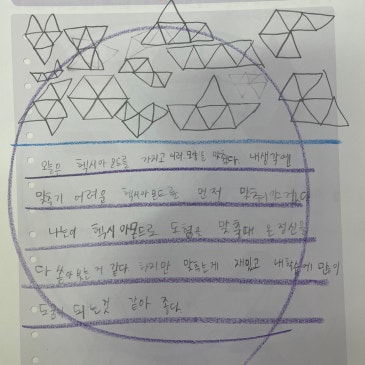 오늘은 헥시아몬드를 가지고 여러 모양을 만들었다. 내생각엔
맞추기 어려운 헥시아몬드를 먼저 맞춰
나는 헥시아몬드로 도형을 맞출때 온 정신을
다 쏟아 붓는거 같다 하지만 맞추는게 재밌고 내 많이
도움이 되는것 같아 좋다.